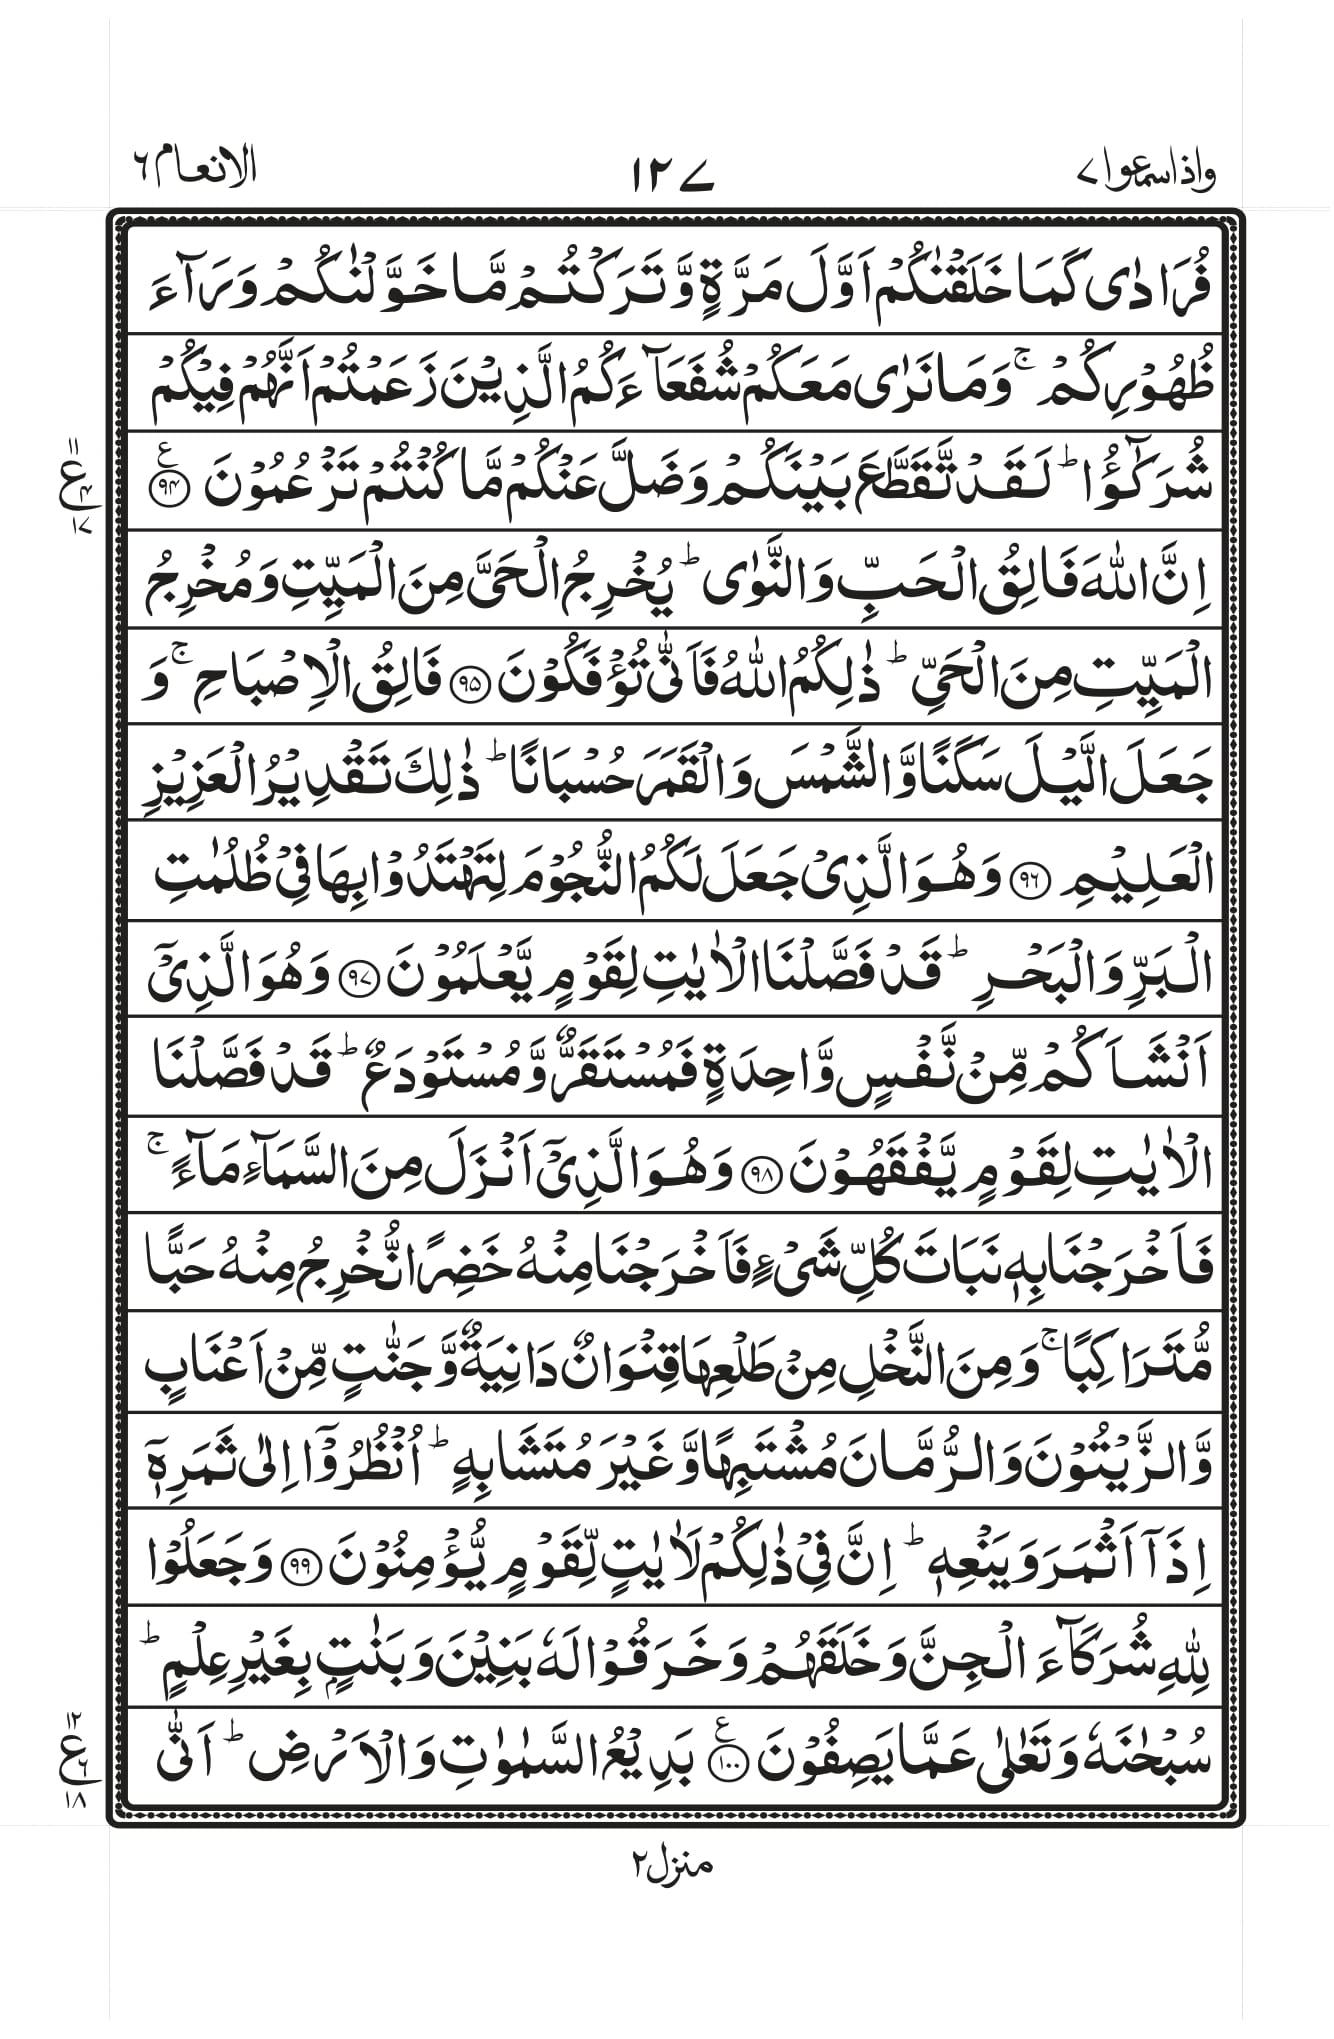 واذاسمعوا ٧
١٢٧
الانعام ٦
فُرَادٰى كَمَا خَلَقْنٰكُمْ اَوَّلَ مَرَّةٍ وَّتَرَكْتُمْ مَّا خَوَّلْنٰكُمْ وَرَآءَ
ظُهُوْرِكُمْ ۚ وَمَا نَرٰى مَعَكُمْ شُفَعَآءَكُمُ الَّذِيْنَ زَعَمْتُمْ اَنَّهُمْ فِيْكُمْ
شُرَكٰٓؤُا ؕ لَقَدْ تَّقَطَّعَ بَيْنَكُمْ وَضَلَّ عَنْكُمْ مَّا كُنْتُمْ تَزْعُمُوْنَ ﴿۹۴﴾ ع
۱۱
ع ۴
۱۷
اِنَّ اللّٰهَ فَالِقُ الْحَبِّ وَالنَّوٰى ؕ يُخْرِجُ الْحَىَّ مِنَ الْمَيِّتِ وَمُخْرِجُ
الْمَيِّتِ مِنَ الْحَىِّ ؕ ذٰلِكُمُ اللّٰهُ فَاَنّٰى تُؤْفَكُوْنَ ﴿۹۵﴾ فَالِقُ الْاِصْبَاحِ ۚ وَ
جَعَلَ الَّيْلَ سَكَنًا وَّالشَّمْسَ وَالْقَمَرَ حُسْبَانًا ؕ ذٰلِكَ تَقْدِيْرُ الْعَزِيْزِ
الْعَلِيْمِ ﴿۹۶﴾ وَهُوَ الَّذِىْ جَعَلَ لَكُمُ النُّجُوْمَ لِتَهْتَدُوْا بِهَا فِىْ ظُلُمٰتِ
الْبَرِّ وَالْبَحْرِ ؕ قَدْ فَصَّلْنَا الْاٰيٰتِ لِقَوْمٍ يَّعْلَمُوْنَ ﴿۹۷﴾ وَهُوَ الَّذِىْٓ
اَنْشَاَكُمْ مِّنْ نَّفْسٍ وَّاحِدَةٍ فَمُسْتَقَرٌّ وَّمُسْتَوْدَعٌ ؕ قَدْ فَصَّلْنَا
الْاٰيٰتِ لِقَوْمٍ يَّفْقَهُوْنَ ﴿۹۸﴾ وَهُوَ الَّذِىْٓ اَنْزَلَ مِنَ السَّمَآءِ مَآءً ۚ
فَاَخْرَجْنَا بِهٖ نَبَاتَ كُلِّ شَىْءٍ فَاَخْرَجْنَا مِنْهُ خَضِرًا نُّخْرِجُ مِنْهُ حَبًّا
مُّتَرَاكِبًا ۚ وَمِنَ النَّخْلِ مِنْ طَلْعِهَا قِنْوَانٌ دَانِيَةٌ وَّجَنّٰتٍ مِّنْ اَعْنَابٍ
وَّالزَّيْتُوْنَ وَالرُّمَّانَ مُشْتَبِهًا وَّغَيْرَ مُتَشَابِهٍ ؕ اُنْظُرُوْٓا اِلٰى ثَمَرِهٖٓ
اِذَآ اَثْمَرَ وَيَنْعِهٖ ؕ اِنَّ فِىْ ذٰلِكُمْ لَاٰيٰتٍ لِّقَوْمٍ يُّؤْمِنُوْنَ ﴿۹۹﴾ وَجَعَلُوْا
لِلّٰهِ شُرَكَآءَ الْجِنَّ وَخَلَقَهُمْ وَخَرَقُوْا لَهٗ بَنِيْنَ وَبَنٰتٍۢ بِغَيْرِ عِلْمٍ ؕ
سُبْحٰنَهٗ وَتَعٰلٰى عَمَّا يَصِفُوْنَ ﴿۱۰۰﴾ ع بَدِيْعُ السَّمٰوٰتِ وَالْاَرْضِ ؕ اَنّٰى
۱۲
ع ۶
۱۸
منزل ٢